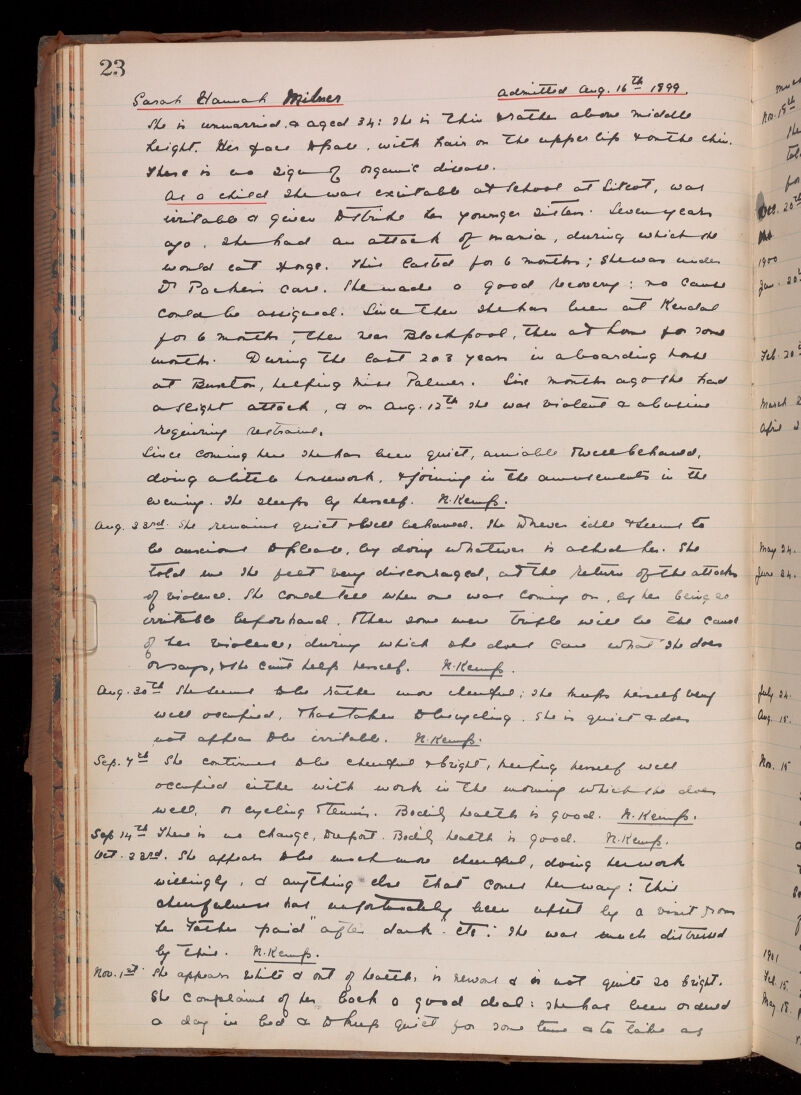 23
Sarah Hannah Milner admitted Aug. 16th 1899.
She is unmarried, & aged 34: she is thin & rather above middle
height. Her face is pale, with hair on the upper lip & on the chin.
There is no sign of organic disease.
As a child she was excitable at school at Sidcot, was
irritable & given to strike her younger sisters. Seven years
ago, she had an attack of mania, during which she
would eat This lasted for 6 months; she was under
Dr care. She made a good recovery: no cause
could be assigned. Since then she has been at Kendal
for 6 months, then near Blackpool, then at home for some
months. During the last 2 or 3 years in a boarding house
at Buxton, helping Miss Palmer. Six months ago she had
a slight attack, & on Aug. 12th she was violent & abusive
requiring restraint.
Since coming here she has been quiet, amiable & well behaved,
doing a little housework, & joining in the amusements in the
evening. She sleeps by herself. N. Kemp.
Aug. 23rd. She remains quiet & well behaved. She is never idle & seems to
be anxious to please, by doing whatever is asked her. She
told me she felt very discouraged, at the return of the attacks
of violence. She could tell when one was coming on, by her being so
irritable beforehand. Then some mere trifle will be the cause
of her violence, during which she does care what she does
or says, & she can't help herself. N. Kemp.
Aug. 30th She seems to be rather more cheerful: she keeps herself very
well occupied, & has taken to bicycling. She is quiet & does
not appear to be irritable. N. Kemp.
Sep. 7th She continues to be cheerful & bright, keeping herself well
occupied either with work in the morning which she does
well, or cycling & tennis. Bodily health is good. N. Kemp.
Sep 14th There is no change, to report. Bodily health is good. N. Kemp.
Oct. 23rd. She appears to be much more cheerful, doing her work
willingly, & anything else that comes her way: this
cheerfulness has unfortunately been upset by a visit from
her Father paid "after dark" etc: she was much distressed
by this. N. Kemp.
Nov. 1st She appears white & out of health, is & is not quite so bright.
She complains of her back a good deal: she has been ordered
a day in bed & to keep quiet for some time & to take as
Nov. 18th
Dec. 20th
1900
Jan. 20
Feb. 20
March 2
April 2
May 24.
June 24.
July 24.
Aug. 15.
Nov. 15
1901
Feb. 15.
May 18.